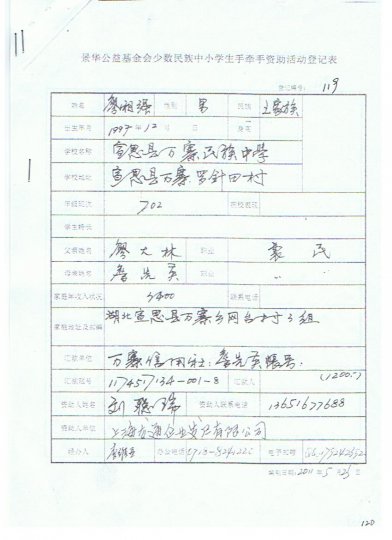 侯华公益基金会少数民族中小学生手牵手资助活动登记表
登记编号: 119
姓名 廖湘强 性别 男 民族 土家族
出生年月 1997年12月 身高
学校名称 宣恩县万寨民族中学
学校地址 宣恩县万寨 田村
年级班次 702 在校表现
学生特长
父亲姓名 廖大林 职业 农民
母亲姓名 职业 〃
家庭年收入状况 3400 联系电话
家庭地址及邮编 湖北宣恩县万寨乡 村3组
汇款单位 万寨信用社:
汇款账号 117451734-001-8 汇款人 (1200.)
资助人姓名 刘 瑞 资助人联系电话 13651677688
资助人单位 上海 有限公司
经办人 办公电话 0718- 电子邮箱
填制日期:2011年5月25日
120